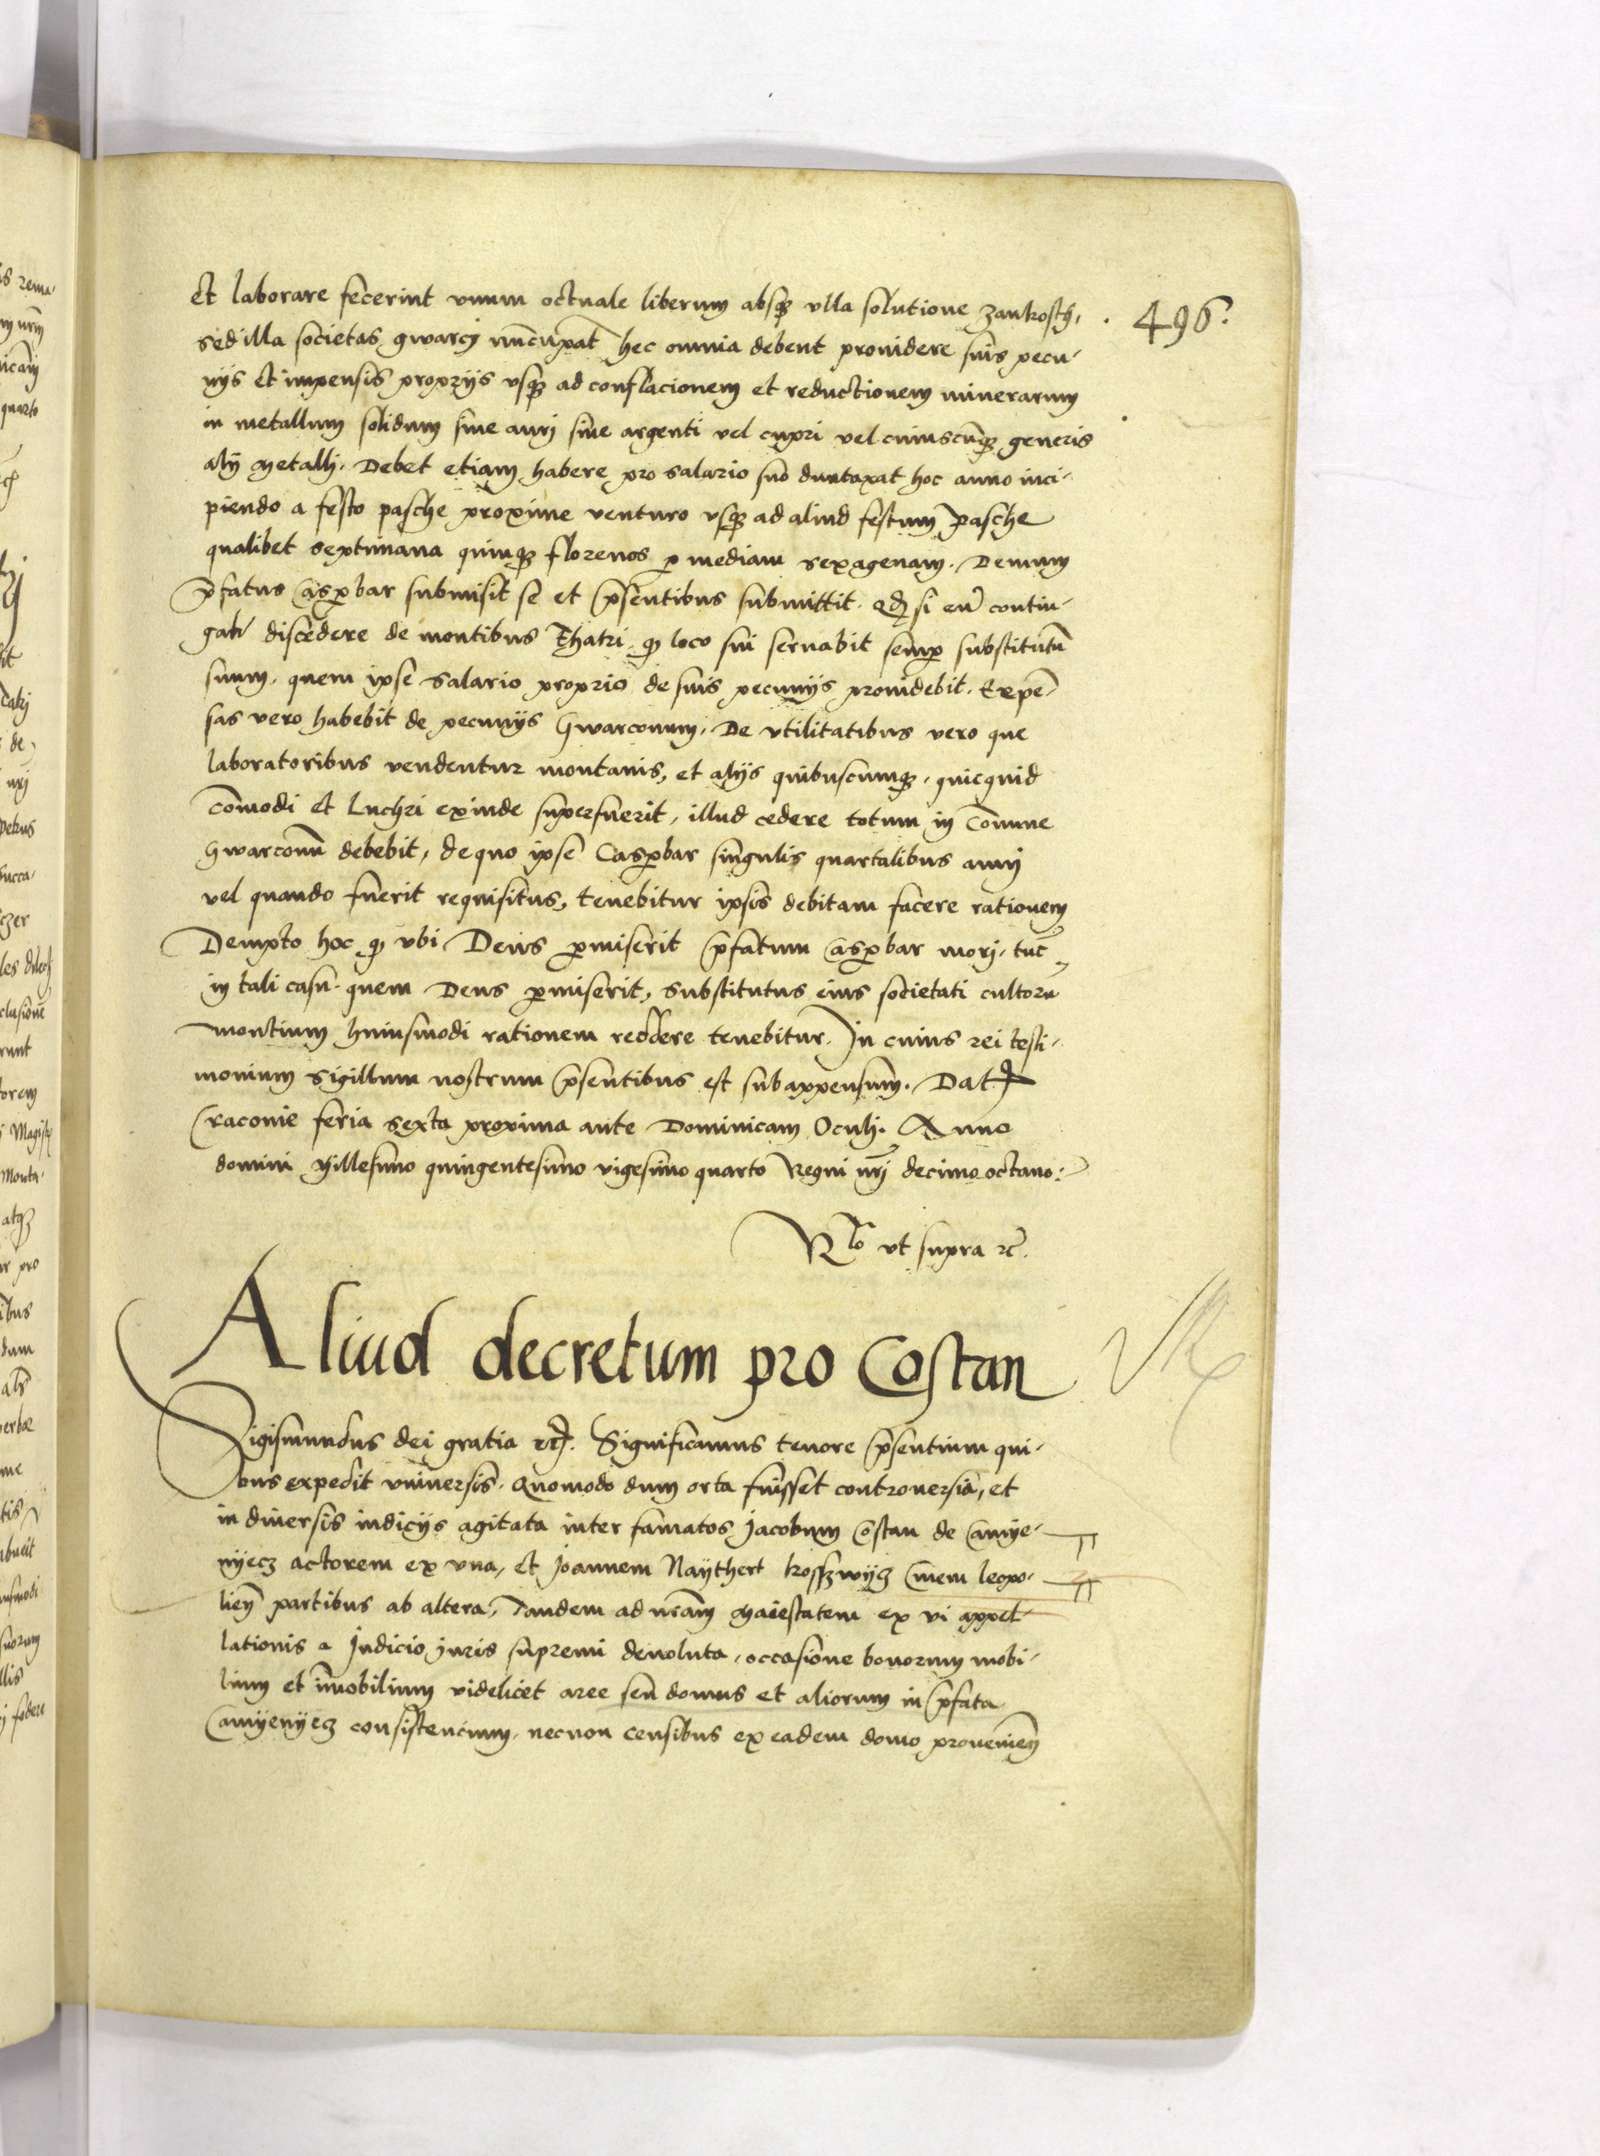 Et laborare fecerint vnum octuale liberum absq3 vlla solutione zankosth,
· 496 ·
sed illa societas gwarcy nũcupat̃ hec omnia debent prouidere suis pecu-
nijs et impensis proprijs vsq3 ad conflacionem et reductionem minerarum
in metallum solidum siue auri siue argenti vel cupri vel cuiuscũq3 generis
alij metalli. Debet etiam habere pro salario suo duntaxat hoc anno inci-
piendo a festo pasche proxime venturo vsq3 ad aliud festum pasche
qualibet septimana quinq3 florenos p mediam sexagenam. Demum
p̃fatus Casp̲bar submisit se et p̃sentibus submittit. qd si eũ contin-
gat̃ discedere de montibus Thatri q loco sui seruabit semp̲ substitutũ
suum. quem ipse salario proprio de suis pecunijs prouidebit. Expẽ-
sas vero habebit de pecunijs Gwarconum. De vtilitatibus vero que
laboratoribus vendentur montanis, et alijs quibuscumq3. quicquid
com̃odi et Luchri exinde superfuerit, illud cedere totum in Com̃une
Gwarconũ debebit, de quo ipse Casp̲bar singulis quartalibus anni
vel quando fuerit requisitus, tenebitur ipsis debitam facere rationem
Dempto hoc q vbi Deus p̲miserit p̃fatum Casp̲bar mori. tũc
in tali casu. quem Deus p̲miserit, substitutus eius societati cultorũ
montium huiusmodi rationem reddere tenebitur. In cuius rei testi-
monium sigillum nostrum p̃sentibus est subappensum. Dat̃
Cracouie feria sexta proxima ante Dominicam Oculi. Anno
domini Millesimo quingentesimo vigesimo quarto Regni nr̃i decimo octauo:
Rlo vt supra rc̃.
Aliud decretum pro Costan
Sigismundus dei gratia rc̃. Significamus tenore p̃sentium qui-
bus expedit vniuersis. Quomodo dum orta fuisset controuersia, et
in diuersis iudicijs agitata inter famatos Jacobum Costan de Camye-
nyecz actorem ex vna, et Joannem Naythert kosszwycz Ciuem leopo-
lieñ partibus ab altera, Tandem ad nr̃am Maiestatem ex vi appel-
lationis a Judicio juris supremi deuoluta, occasione bonorum mobi-
lium et im̃obilium videlicet aree seu domus et aliorum in p̃fata
Camyenyecz consistencium, necnon censibus ex eadem domo proueñieñ